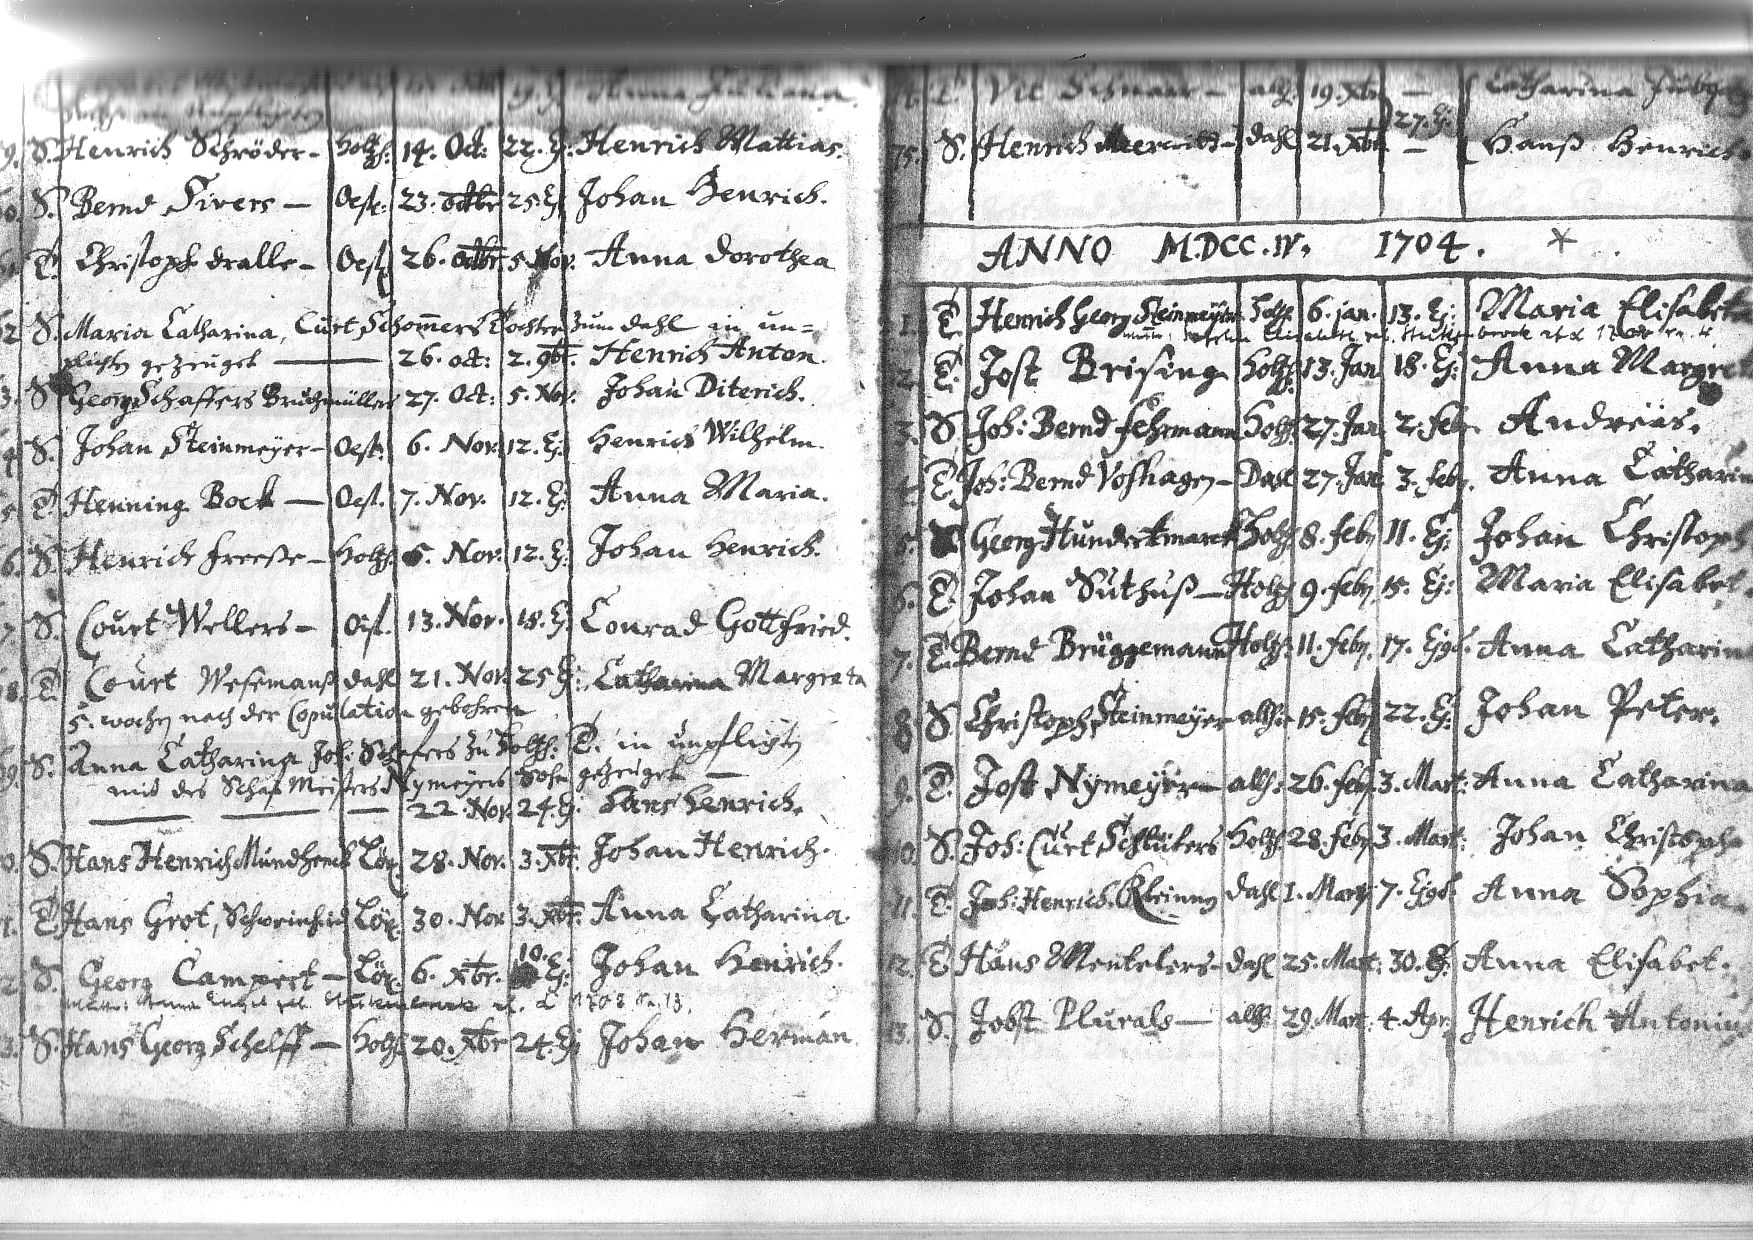 Anna Juliana.
9. S. Henrich Schröder – Holtz: 14. Oct: 22. Ej: Henrich Mattias.
S. Bernd Sivers – Oest: 23. octbr 25 Ej Johan Henrich.
T. Christoph dralle – Oest 26. octbr. 5 Nov. Anna dorothea
62 S. Maria Catharina, Curt Schom̄ers Tochter zum dahl in un=
pflichten gezeuget — 26. oct: 2. 9br. Henrich Anton.
3. S Georg Schaffers Bruchmüllers 27. Oct: 5. Nov. Johan Diterich.
4 S. Johan Steinmeyer – Oest. 6. Nov. 12. Ej: Henrich Wilhelm.
5 T. Henning Bock — Oest. 7. Nov. 12. Ej: Anna Maria.
6. S. Henrich freese – Holtz. 6. Nov. 12. Ej: Johan Henrich.
7. S. Court Wellers – Oest. 13. Nov. 18. Ej. Conrad Gottfried.
68. T Court Wesemanß dahl 21. Nov. 25 Ej: Catharina Margreta
5. wochen nach der Copulation gebohren
69. S. Anna Catharina Joh: Schefers zu Holtz. T. in unpflichten
mit des Schaf Meisters Nymeyers Sohn gezeuget —
22. Nov. 24. Ej: Hans Henrich.
S. Hans Henrich Mundhenck Lör. 28. Nov. 3. Xbr. Johan Henrich.
1. T. Hans Grot, Schweinhird Lör. 30. Nov 3. Xbr. Anna Catharina.
2 S. Georg Campert – Lör. 6. Xbr. 10. Ej: Johan Henrich.
3. S. Hans Georg Schelff – Holtz. 20. Xbr 24. Ej Johan Herman
T. Vit Schnaar – allh. 19. Xbr — Catharina
75. S. Henrich – dahl 21. Xbr. 27. Ej: Hanß Henrich
ANNO M.DCC.IV. 1704.
1. T. Henrich Georg Steinmeyer Holtz 6. jan. 13. Ej: Maria Elisabeta
2. T. Jost Brising Holtz. 13. Jan 18. Ej: Anna Margret
3. S Joh: Bernd fehrmann Holtz. 27. Jan 2. feb. Andreas.
4. T. Joh: Bernd Voshagen – Dahl 27. Jan 3. feb. Anna Catharin
5. Georg Hundertmarck Holtz 8. feb. 11. Ej: Johan Christoph
6. T. Johan Suthuß – Holtz 9. feb. 15. Ej: Maria Elisabet.
7. T. Bernd Brüggemann Holtz. 11. feb. 17. Ejd. Anna Catharin
8 S Christoph Steinmeyer allh. 15. feb. 22. Ej: Johan Peter.
9. T. Jost Nymeyer – allh. 26. feb. 3. Mart: Anna Catharina
10. S. Joh: Curt Schlüters Holtz. 28. feb. 3. Mart: Johan Christoph
11. T. Joh: Henrich dahl 1. Mart 7. Ejd. Anna Sophia.
12. T. Hans Mentelers – dahl 25. Mart: 30. Ej: Anna Elisabet.
13. S. Jobst Plurals — allh. 29. Mart. 4. Apr. Henrich Antonius